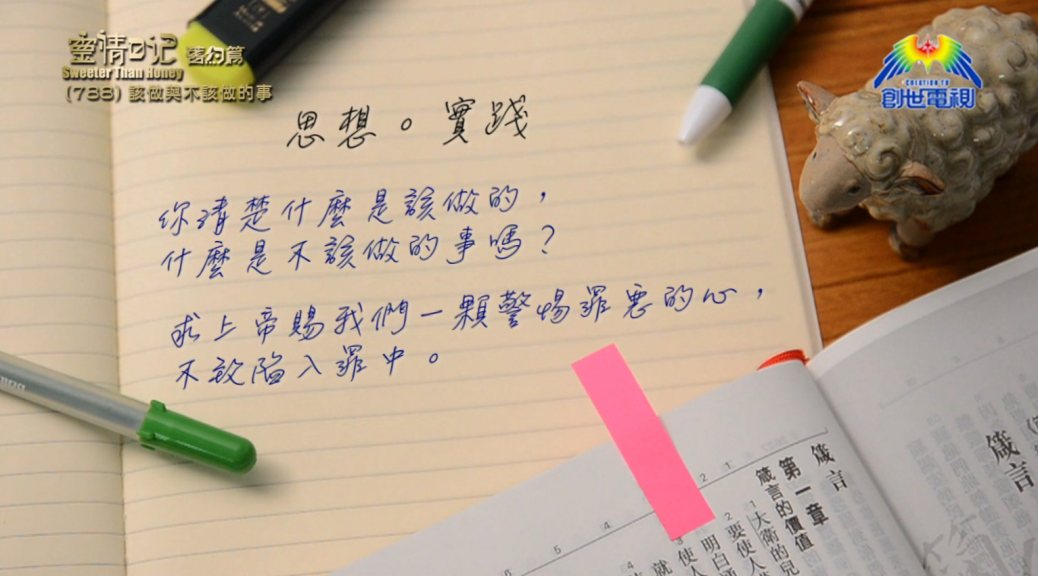 靈情日记 箴言篇
Sweeter Than Honey
(788) 該做與不該做的事
CREATION TV
創世電視
思想。實踐
你清楚什麼是該做的，
什麼是不該做的事嗎？
求上帝賜我們一顆警惕罪惡的心，
不致陷入罪中。
箴言
第一章
箴言的價值
1 大衛的兒
2 要使人
明白
3 使人
4
就
1
2
3
4
5
6
箴言